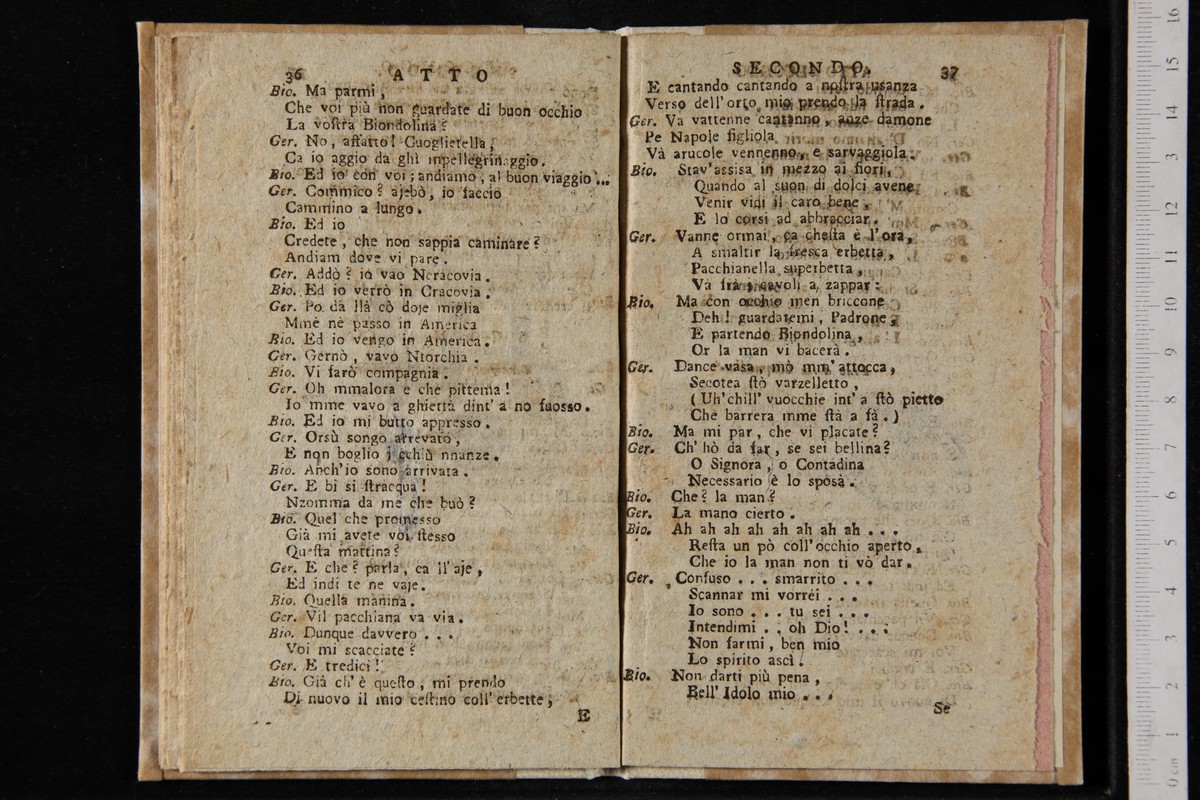 36 ATTO
Bio. Ma parmi,
Che voi più non guardate di buon occhio
La voſtra Biondolina?
Ger. No, affatto! Cuoglietella,
Ca io aggio da ghì mpellegrinaggio.
Bio. Ed io con voi; andiamo, al buon viaggio...
Ger. Commico? ajebò, io faccio
Cammino a lungo.
Bio. Ed io
Credete, che non sappia caminare?
Andiam dove vi pare.
Ger. Addò? io vao Ncracovia.
Bio. Ed io verrò in Cracovia.
Ger. Po da llà cò doje miglia
Mmè ne passo in America
Bio. Ed io vengo in America.
Ger. Gernò, vavo Ntorchia.
Bio. Vi farò compagnia.
Ger. Oh mmalora e che pittema!
Io mme vavo a ghiettà dint' a no fuosso.
Bio. Ed io mi butto appresso.
Ger. Orsù songo arrevato,
E non boglio j cchiù nnanze.
Bio. Anch'io sono arrivata.
Ger. E bi si ſtracqua!
Nzomma da me che buò?
Bio. Quel che promesso
Già mi avete voi ſtesso
Queſta mattina?
Ger. E che? parla, ca ll'aje,
Ed indi te ne vaje.
Bio. Quella manina.
Ger. Vil pacchiana va via.
Bio. Dunque davvero . . .
Voi mi scacciate?
Ger. E tredici!
Bio. Già ch'è queſto, mi prendo
Di nuovo il mio ceſtino coll'erbette;
E
SECONDO. 37
E cantando cantando a noſtra usanza
Verso dell'orto mio prendo la ſtrada.
Ger. Va vattenne cantanno, anze damone
Pe Napole figliola
Và arucole vennenno, e sarvaggiola.
Bio. Stav'assisa in mezzo ai fiori,
Quando al suon di dolci avene
Venir vidi il caro bene,
E lo corsi ad abbracciar.
Ger. Vanne ormai, ca cheſta è l'ora,
A smaltir la fresca erbetta,
Pacchianella superbetta,
Va fra cavoli a zappar:
Bio. Ma con occhio men briccone
Deh! guardatemi, Padrone,
E partendo Biondolina,
Or la man vi bacerà.
Ger. Dance vasa, mò mm'attocca,
Secotea ſtò varzelletto,
(Uh'chill' vuocchie int' a ſtò pietto
Che barrera mme ſtà a fà.)
Bio. Ma mi par, che vi placate?
Ger. Ch' hò da far, se sei bellina?
O Signora, o Contadina
Necessario è lo sposà.
Bio. Che? la man?
Ger. La mano cierto.
Bio. Ah ah ah ah ah ah ah ah . . .
Reſta un pò coll'occhio aperto,
Che io la man non ti vò dar.
Ger. Confuso . . . smarrito . . .
Scannar mi vorréi . . .
Io sono . . . tu sei . . .
Intendimi . . oh Dio! . . .
Non farmi, ben mio
Lo spirito ascì.
Bio. Non darti più pena,
Bell' Idolo mio . . .
Se